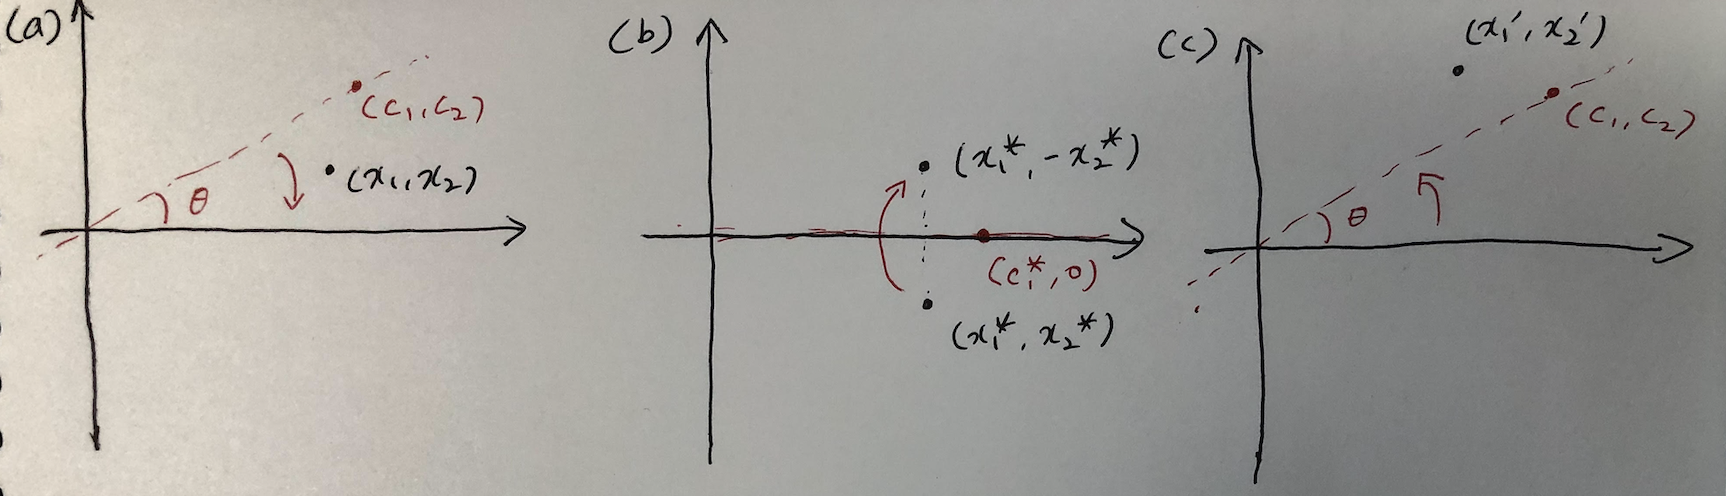 (a)
(c₁, c₂)
(x₁, x₂)
θ
(b)
(x₁*, -x₂*)
(c₁*, 0)
(x₁*, x₂*)
(c)
(x₁′, x₂′)
(c₁, c₂)
θ